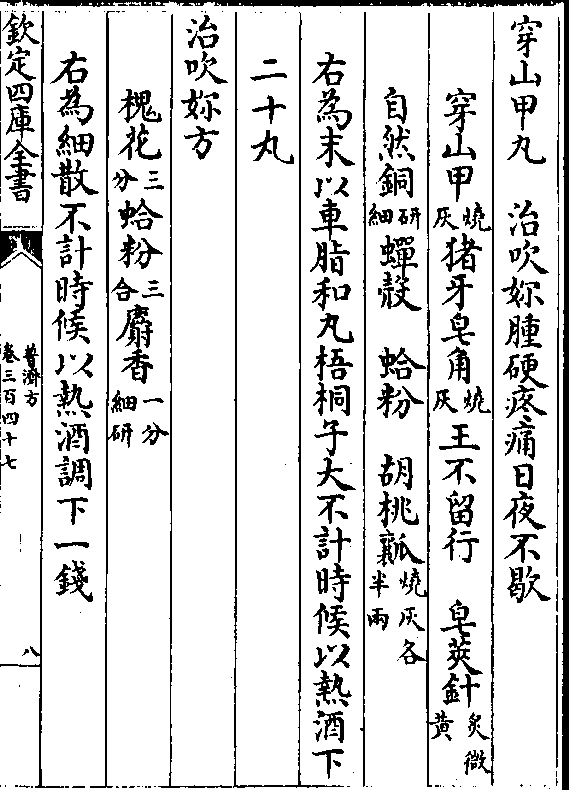 穿山甲丸　治吹妳腫硬疼痛日夜不歇
穿山甲燒灰猪牙皂角燒灰王不留行　皁莢針炙微黃
自然銅研細蟬殼　蛤粉　胡桃瓤燒灰各半兩
右為末以車脂和丸梧桐子大不計時候以熱酒下
二十丸
治吹妳方
槐花三分蛤粉三合麝香一分細研
右為細散不計時候以熱酒調下一錢
欽定四庫全書
普濟方
卷三百四十七
八